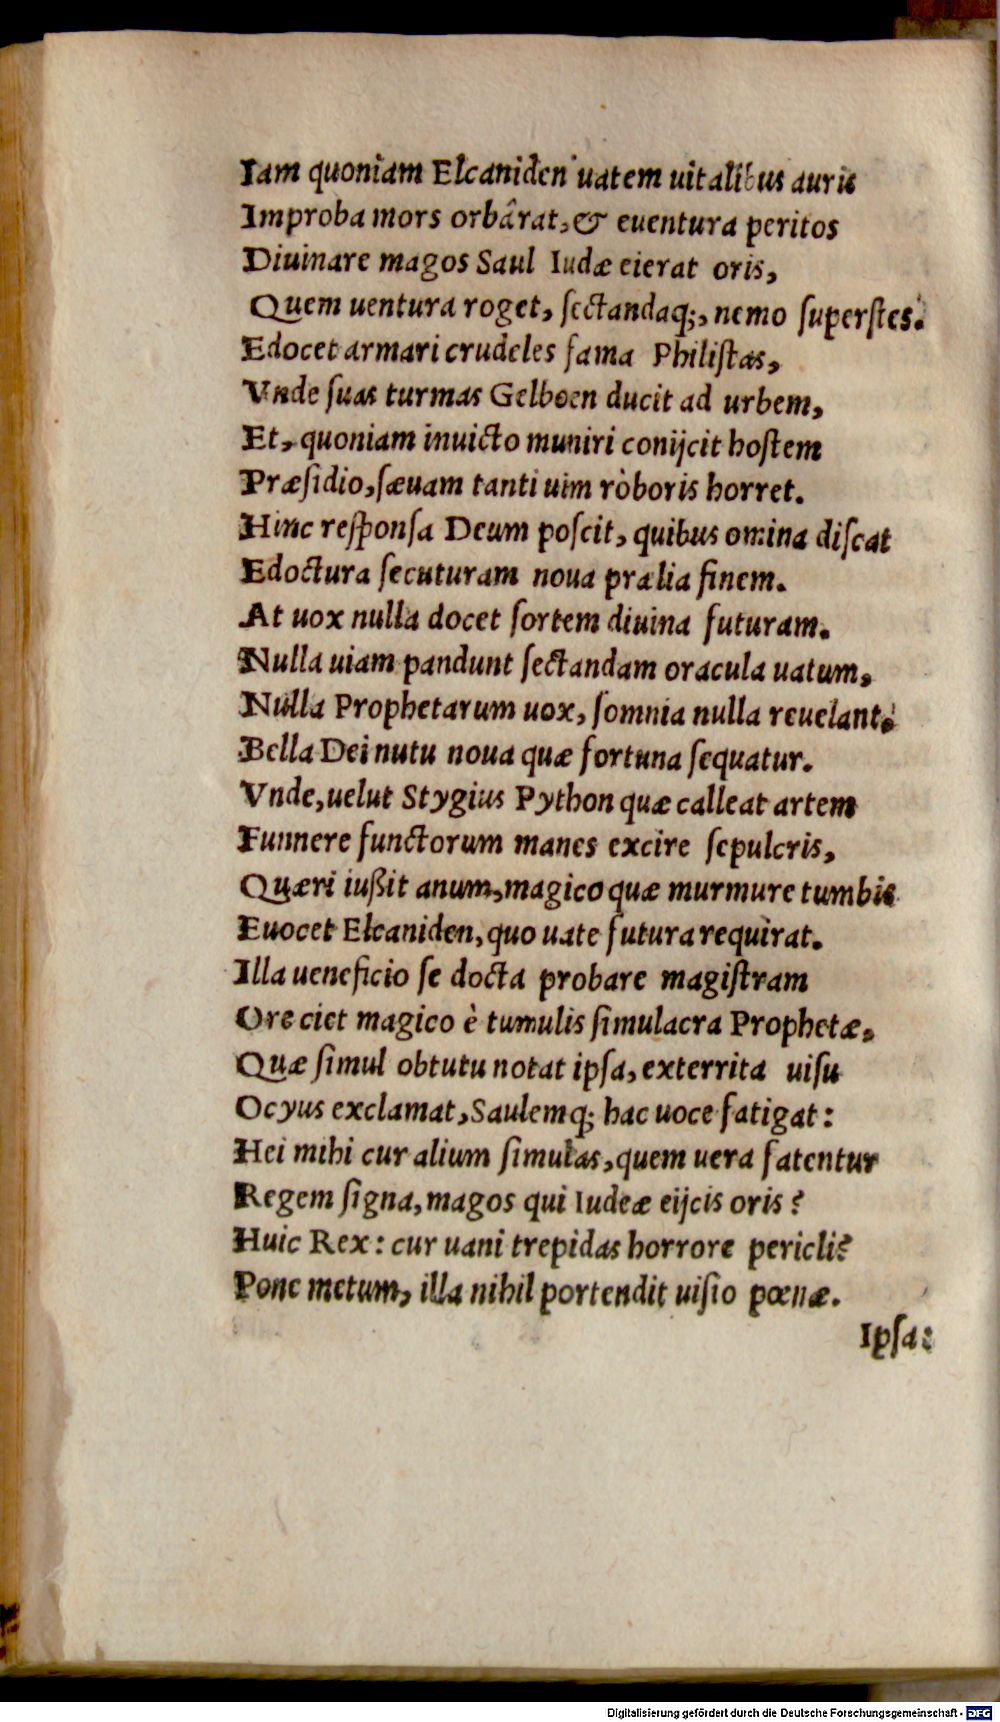 Iam quoniam Elcaniden uatem uitalibus auris
Improba mors orbârat, & euentura peritos
Diuinare magos Saul Iudæ eierat oris,
Quem uentura roget, sectandaq;, nemo superstes.
Edocet armari crudeles fama Philistas,
Vnde suas turmas Gelboen ducit ad urbem,
Et, quoniam inuicto muniri conijcit hostem
Præsidio, sæuam tanti uim ròboris horret.
Hinc responsa Deum poscit, quibus omina discat
Edoctura secuturam noua prælia finem.
At uox nulla docet sortem diuina futuram.
Nulla uiam pandunt sectandam oracula uatum,
Nulla Prophetarum uox, somnia nulla reuelant.
Bella Dei nutu noua quæ fortuna sequatur.
Vnde, uelut Stygius Python quæ calleat artem
Funnere functorum manes excire sepulcris,
Quæri iußit anum, magico quæ murmure tumbis
Euocet Elcaniden, quo uate futura requirat.
Illa ueneficio se docta probare magistram
Ore ciet magico è tumulis simulacra Prophetæ,
Quæ simul obtutu notat ipsa, exterrita uisu
Ocyus exclamat, Saulemq; hac uoce fatigat:
Hei mihi cur alium simulas, quem uera fatentur
Regem signa, magos qui Iudeæ eijcis oris?
Huic Rex: cur uani trepidas horrore pericli?
Pone metum, illa nihil portendit uisio pœnæ.
Ipsa:
Digitalisierung gefördert durch die Deutsche Forschungsgemeinschaft - DFG